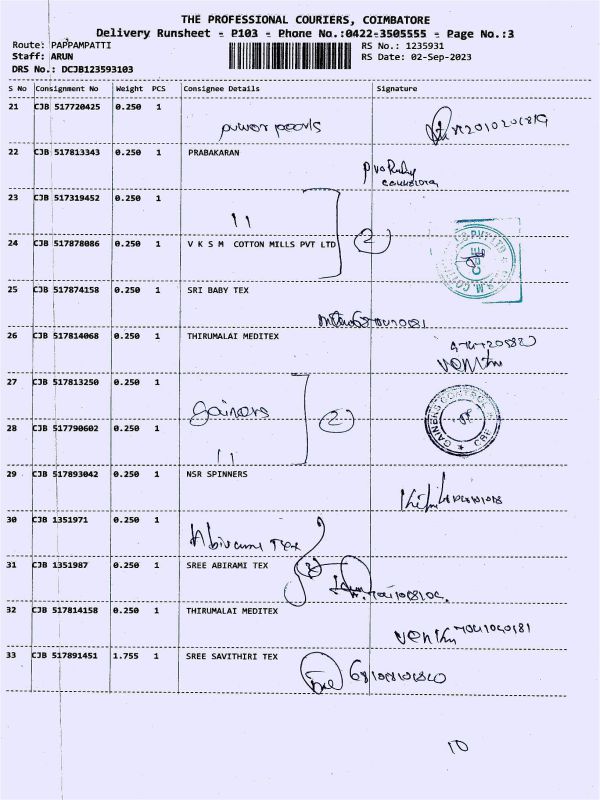 THE PROFESSIONAL COURIERS, COIMBATORE
Delivery Runsheet - P103 - Phone No.:0422-3505555 - Page No.:3
Route: PAPPAMPATTI RS No.: 1235931
Staff: ARUN RS Date: 02-Sep-2023
DRS No.: DCJB123593103
S No Consignment No Weight PCS Consignee Details Signature
21 CJB 517720425 0.250 1
22 CJB 517813343 0.250 1 PRABAKARAN
23 CJB 517319452 0.250 1 11
24 CJB 517878086 0.250 1 V K S M COTTON MILLS PVT LTD 2
25 CJB 517874158 0.250 1 SRI BABY TEX
26 CJB 517814068 0.250 1 THIRUMALAI MEDITEX
27 CJB 517813250 0.250 1 Gainers
28 CJB 517790602 0.250 1 11 2
GAINERS CBE
29 CJB 517893042 0.250 1 NSR SPINNERS
30 CJB 1351971 0.250 1 Abirami Tex
31 CJB 1351987 0.250 1 SREE ABIRAMI TEX
32 CJB 517814158 0.250 1 THIRUMALAI MEDITEX
33 CJB 517891451 1.755 1 SREE SAVITHIRI TEX
10